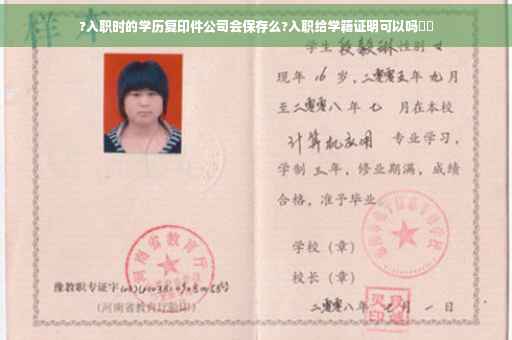 ?入职时的学历复印件公司会保存么?入职给学籍证明可以吗
样本
学生段毅琳性别女
现年16岁,二零零五年九月
至二零零八年七月在本校
计算机应用 专业学习,
学制三年,修业期满,成绩
合格,准予毕业
学校(章)
校长(章)
二零零八年七月一日
河南省教育厅
豫教职专证字
(河南省教育厅验印)